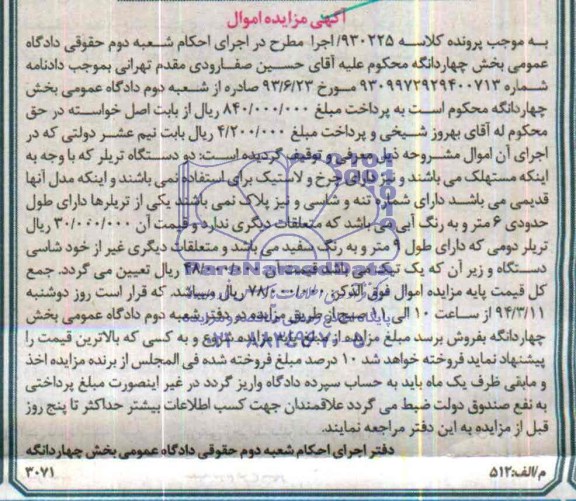 آگهی مزایده اموال
به موجب پرونده کلاسه ۹۳۰۲۲۵/اجرا مطرح در اجرای احکام شعبه دوم حقوقی دادگاه
عمومی بخش چهاردانگه محکوم علیه آقای حسین صفارودی مقدم تهرانی بموجب دادنامه
شماره ۹۳۰۹۹۷۳۹۲۹۴۰۰۷۱۳ مورخ ۹۳/۶/۲۳ صادره از شعبه دوم دادگاه عمومی بخش
چهاردانگه محکوم است به پرداخت مبلغ ۸۴۰/۰۰۰/۰۰۰ ریال از بابت اصل خواسته در حق
محکوم له آقای بهروز شیخی و پرداخت مبلغ ۴/۲۰۰/۰۰۰ ریال بابت نیم عشر دولتی که در
اجرای آن اموال مشروحه ذیل معرفی و توقیف گردیده است: دو دستگاه تریلر که با وجه به
اینکه مستهلک می باشند و نیز دارای چرخ و لاستیک برای استفاده نمی باشند و اینکه مدل آنها
قدیمی می باشد دارای شماره تنه و شاسی و نیز پلاک نمی باشند یکی از تریلرها دارای طول
حدودی ۶ متر و به رنگ آبی می باشد که متعلقات دیگری ندارد و قیمت آن ۳۰/۰۰۰/۰۰۰ ریال
تریلر دومی که دارای طول ۹ متر و به رنگ سفید می باشد و متعلقات دیگری غیر از خود شاسی
دستگاه و زیر آن که یک تیکه می باشد قیمت آن ۴۸/۰۰۰/۰۰۰ ریال تعیین می گردد. جمع
کل قیمت پایه مزایده اموال فوق الذکر ۷۸/۰۰۰/۰۰۰ ریال میباشد. که قرار است روز دوشنبه
۹۴/۳/۱۱ از ساعت ۱۰ الی ۱۱ صبح از طریق مزایده در دفتر شعبه دوم دادگاه عمومی بخش
چهاردانگه بفروش برسد مبلغ مزایده از قیمت پایه شروع و به کسی که بالاترین قیمت را
پیشنهاد نماید فروخته خواهد شد ۱۰ درصد مبلغ فروخته شده فی المجلس از برنده مزایده اخذ
و مابقی ظرف یک ماه باید به حساب سپرده دادگاه واریز گردد در غیر اینصورت مبلغ پرداختی
به نفع صندوق دولت ضبط می گردد علاقمندان جهت کسب اطلاعات بیشتر حداکثر تا پنج روز
قبل از مزایده به این دفتر مراجعه نمایند.
دفتر اجرای احکام شعبه دوم حقوقی دادگاه عمومی بخش چهاردانگه
م/الف:۵۱۲
۳۰۷۱